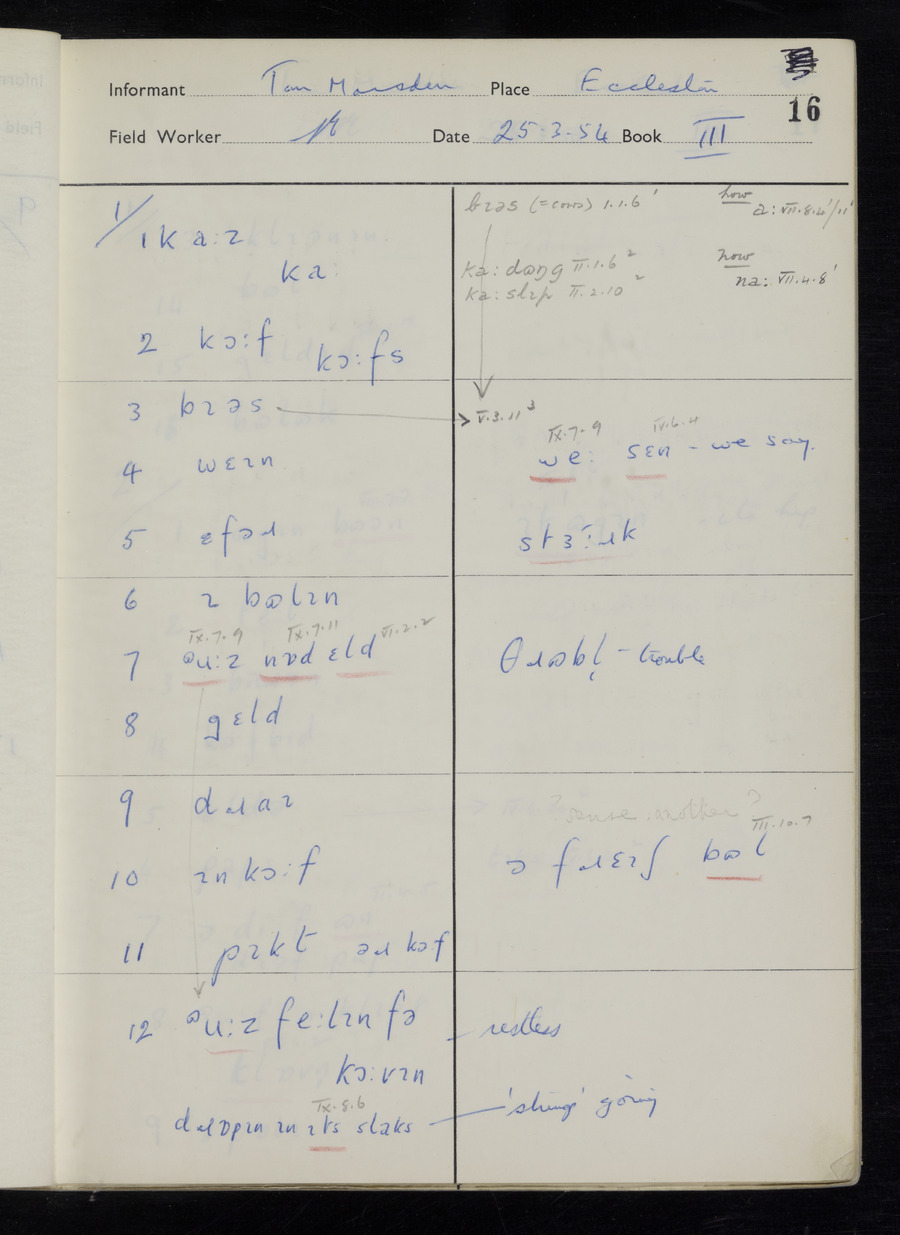 Informant Tom Marsden Place Eccleston
16
Field Worker Date 25.3.54 Book III
1/
1 ka:z
ka:
bɪəs (=cows) 1.1.6'
how
a: VII.8.4'/11'
ka: dɷŋg II.1.6²
ka: slɪp II.2.10²
how
na: VII.4.8'
2 kɔ:f
kɔ:fs
3 bɪəs
V.3.11³
IX.7.9 IV.6.4
we: sɛn - we say.
4 wɛɪn
5 ɛfəɹ
stɜ:ɹk
6 ɪ bɷlɪn
IX.7.9 IX.7.11 VI.2.2
7 ᵊu:z nɒd ɛld
θɹɷbl̩ - trouble
8 gɛld
9 dɹaɪ
? sense another ?
III.10.7
10 ɪn kɔ:f
ə fɹɛɪʃ bɷl
11 pɪkt əɹ kɔf
12 ᵊu:z fe:lɪn fə
kɔ:vɪn
restless
IX.8.6
dɹɒpɪn ɪn ɪts slaks
'slung' going